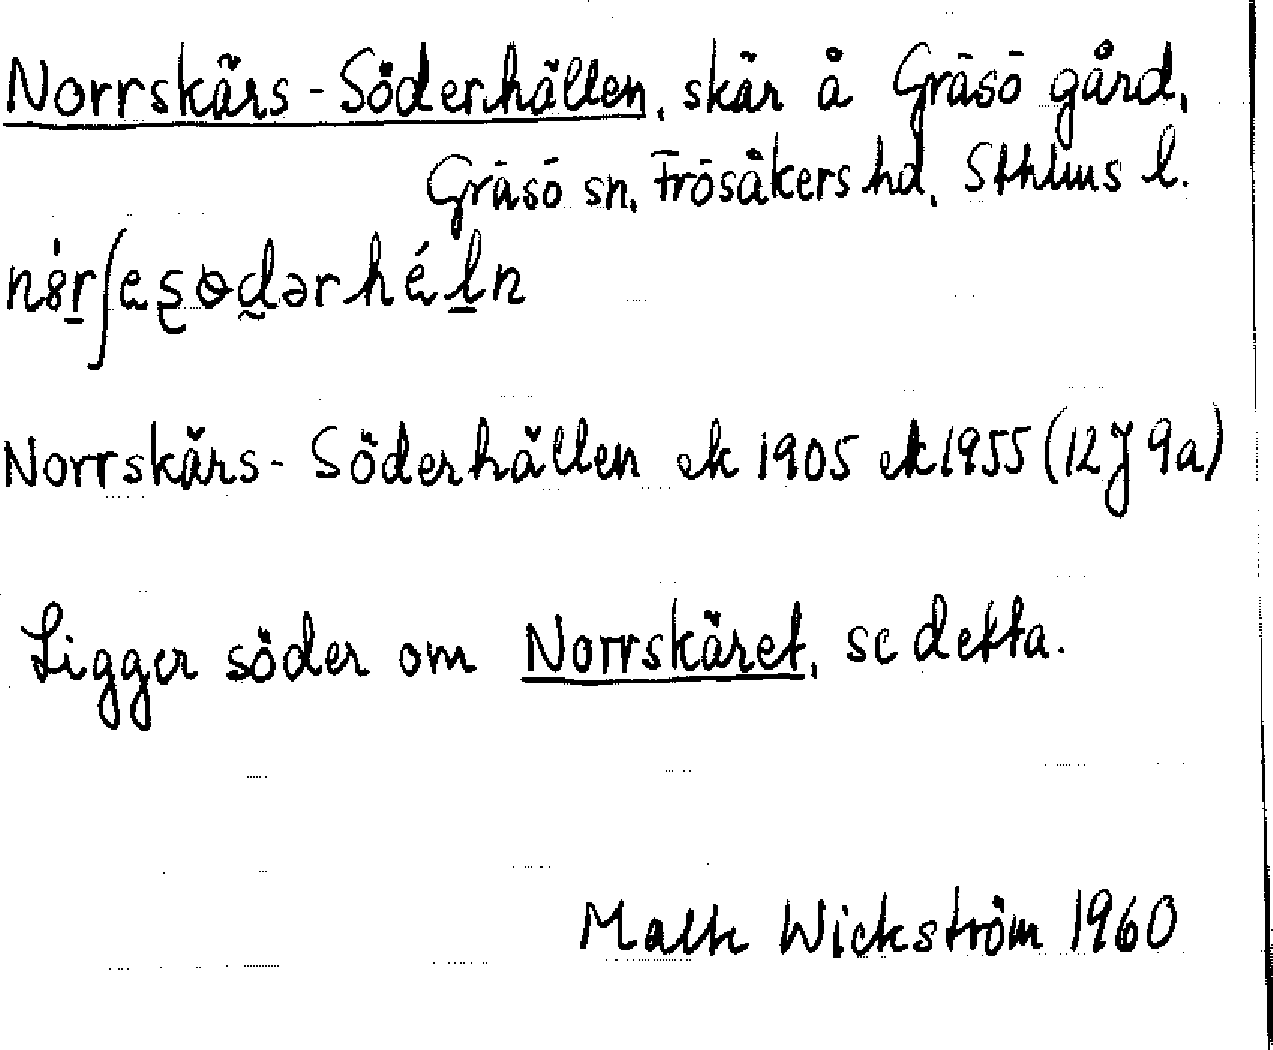 Norrskärs-Söderhällen, skär å Gräsö gård,
Gräsö sn, Frösåkers hd, Sthlms l.
Norrskärs-Söderhällen ek 1905 ek 1955 (12J 9a)
Ligger söder om Norrskäret, se detta.
Wickström 1960